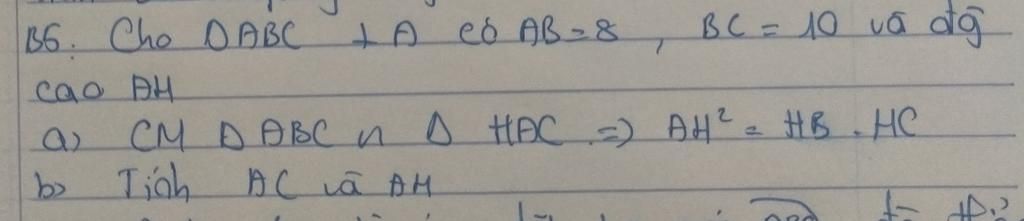 B5. Cho ΔABC ⊥ A có AB = 8, BC = 10 và đg
cao AH
a) CM Δ ABC ∽ Δ HAC => AH² = HB . HC
b) Tính AC và AH